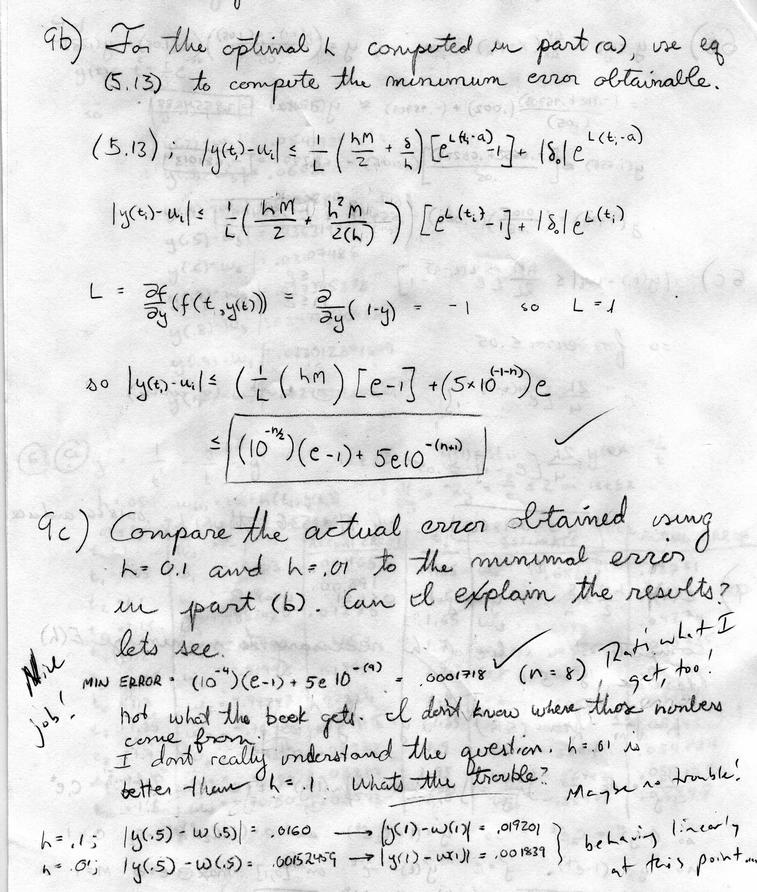 9b) For the optimal h computed in part (a), use eq
(5.13) to compute the minimum error obtainable.
(5.13) ; |y(tᵢ)-uᵢ| ≤ 1/L (hM/2 + δ/h) [e^{L(tᵢ-a)} -1] + |δ₀| e^{L(tᵢ-a)}
|y(tᵢ)-uᵢ| ≤ 1/L (hM/2 + h²M/2(h)) [e^{L(tᵢ)} -1] + |δ₀| e^{L(tᵢ)}
L = ∂f/∂y (f(t, y(t))) = ∂/∂y (1-y) = -1 so L = 1
so |y(tᵢ)-uᵢ| ≤ (1/L (hM) [e-1] + (5×10^{(-1-n)}) e
≤ (10^{-n/2})(e-1) + 5e10^{-(n+1)} ✓
9c) Compare the actual error obtained using
h = 0.1 and h = .01 to the minimal error
in part (b). Can I explain the results?
lets see.
MIN ERROR = (10^{-4})(e-1) + 5e 10^{-(9)} = .0001718 ✓ (n = 8) That's what I get, too!
Nice job!
not what the book gets. I don't know where those numbers
come from.
I dont really understand the question. h=.01 is
better than h=.1. Whats the trouble? Maybe no trouble!
h=.1; |y(.5) - w(.5)| = .0160 → |y(1)-w(1)| = .019201
h=.01; |y(.5) - w(.5) = .00152459 → |y(1)-w(1)| = .001839
} behaving linearly
at this point...